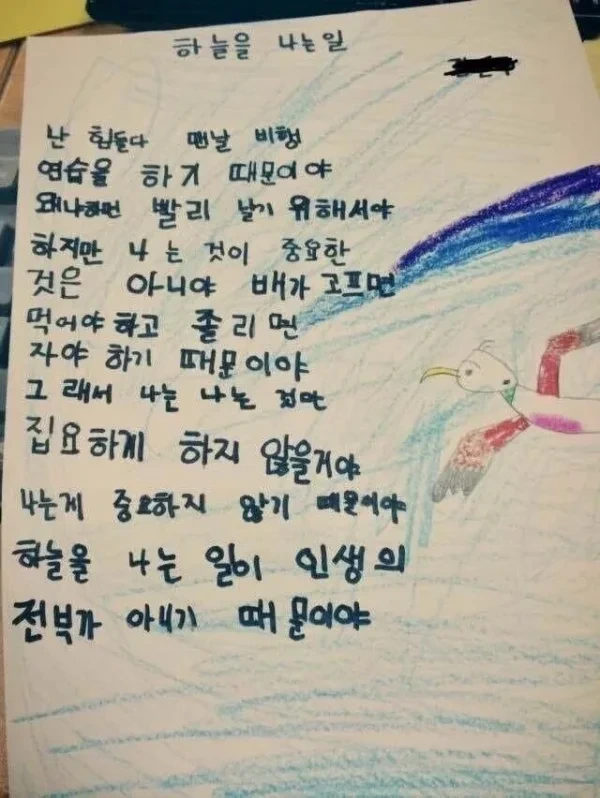 하늘을 나는 일
난 힘들다 맨날 비행
연습을 하기 때문이야
왜냐하면 빨리 날기 위해서야
하지만 나 는 것이 중요한
것은 아니야 배가 고프면
먹어야 하고 졸리면
자야 하기 때문이야
그래서 나는 나는 것만
집요하게 하지 않을거야
나는게 중요하지 않기 때문이야
하늘을 나는 일이 인생의
전부가 아니기 때문이야